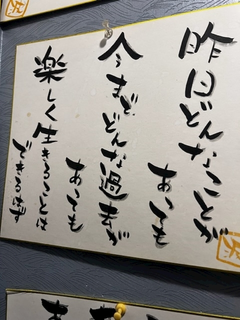 昨日どんなことが
あっても
今までどんな過去が
あっても
楽しく生きることは
できるはず